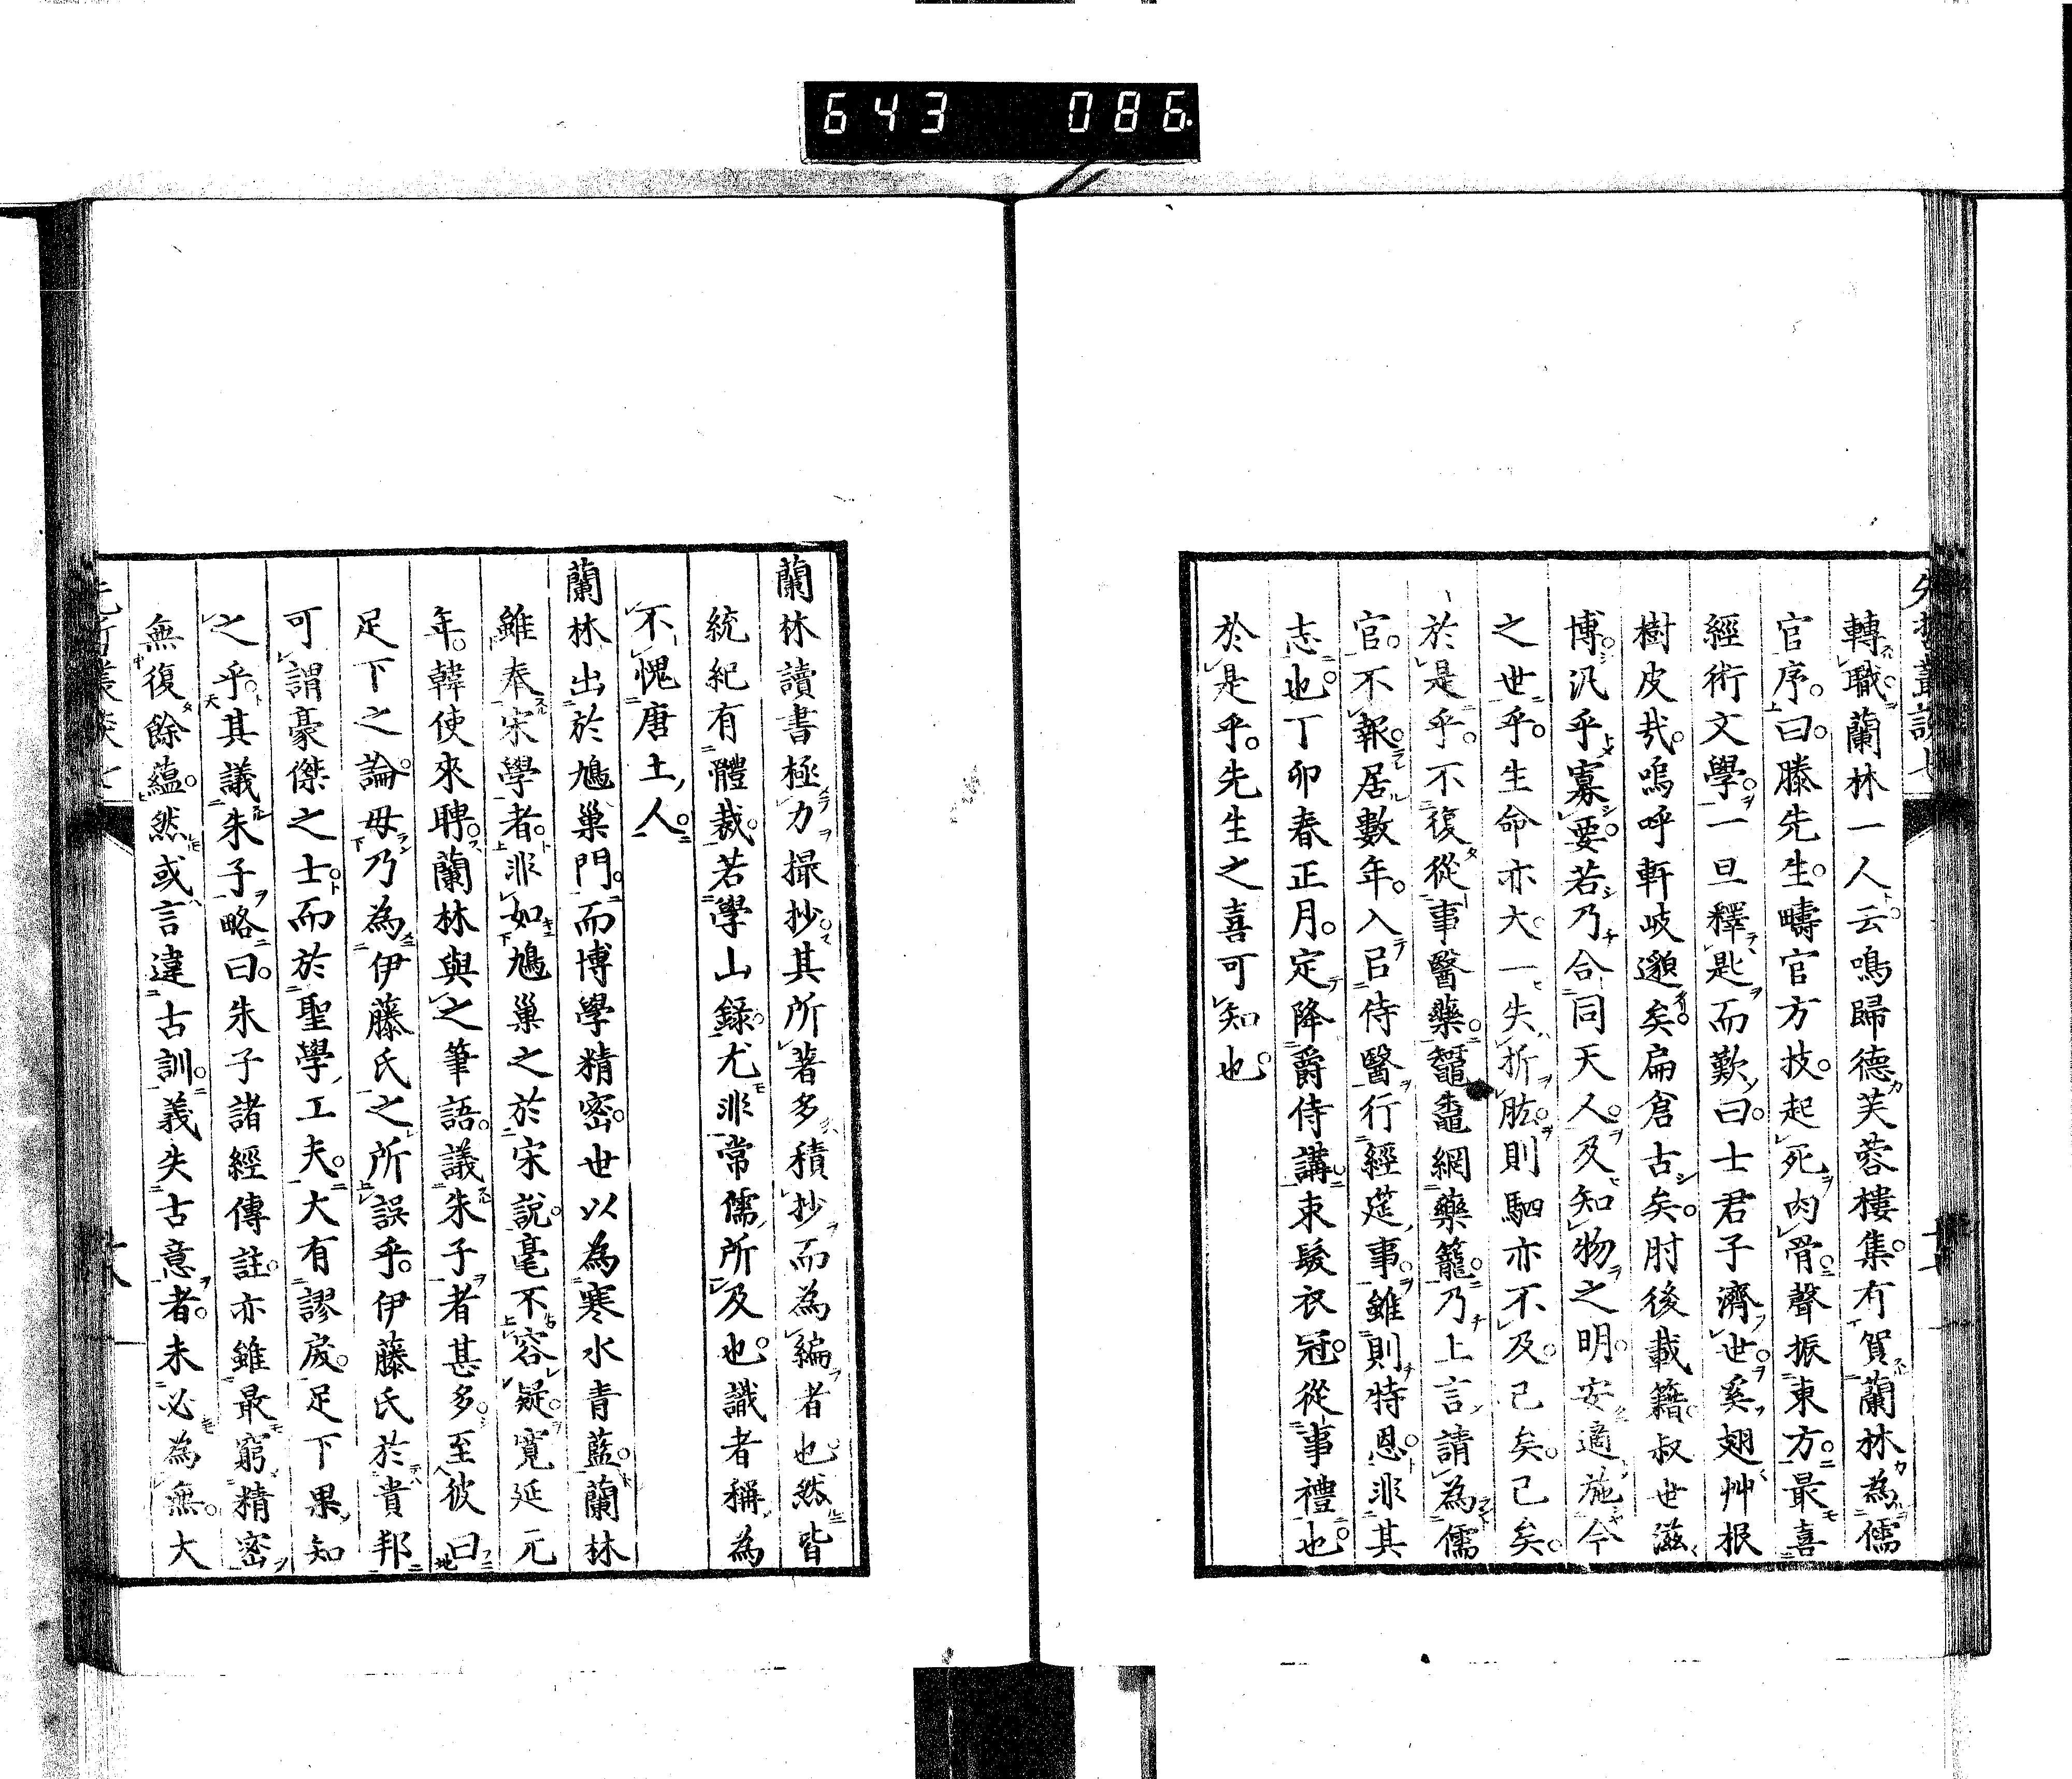 643 086
轉職蘭林一人云鳴歸德芙蓉樓集有賀蘭林為儒
官序曰滕先生疇官方技起死肉骨聲振東方最喜
經術文學一旦釋匙而歎曰士君子濟世奚翅艸根
樹皮哉嗚呼軒岐邈矣扁倉古矣肘後載籍叔世滋
博汎乎寡要若乃合同天人及知物之明安適施今
之世乎生命亦大一失折肱則駟亦不及已矣已矣
於是乎不復從事醫藥網藥籠乃上言請為儒
官不報居數年入召侍醫行經筵事雖則特恩非其
志也丁卯春正月定降爵侍講束髮衣冠從事禮也
於是乎先生之喜可知也
蘭林讀書極力撮抄其所著多積抄而為編者也然皆
統紀有體裁若學山錄尤非常儒所及也識者稱為
不愧唐土人
蘭林出於鳩巢門而博學精密世以為寒水青藍蘭林
雖奉宋學者非如鳩巢之於宋說毫不容疑寬延元
年韓使來聘蘭林與之筆語議朱子者甚多至彼曰
足下之論毋乃為伊藤氏之所誤乎伊藤氏於貴邦
可謂豪傑之士而於聖學工夫大有謬戾足下果知
之乎其議朱子略曰朱子諸經傳註亦雖最窮精密
無復餘蘊然或言違古訓義失古意者未必為無大